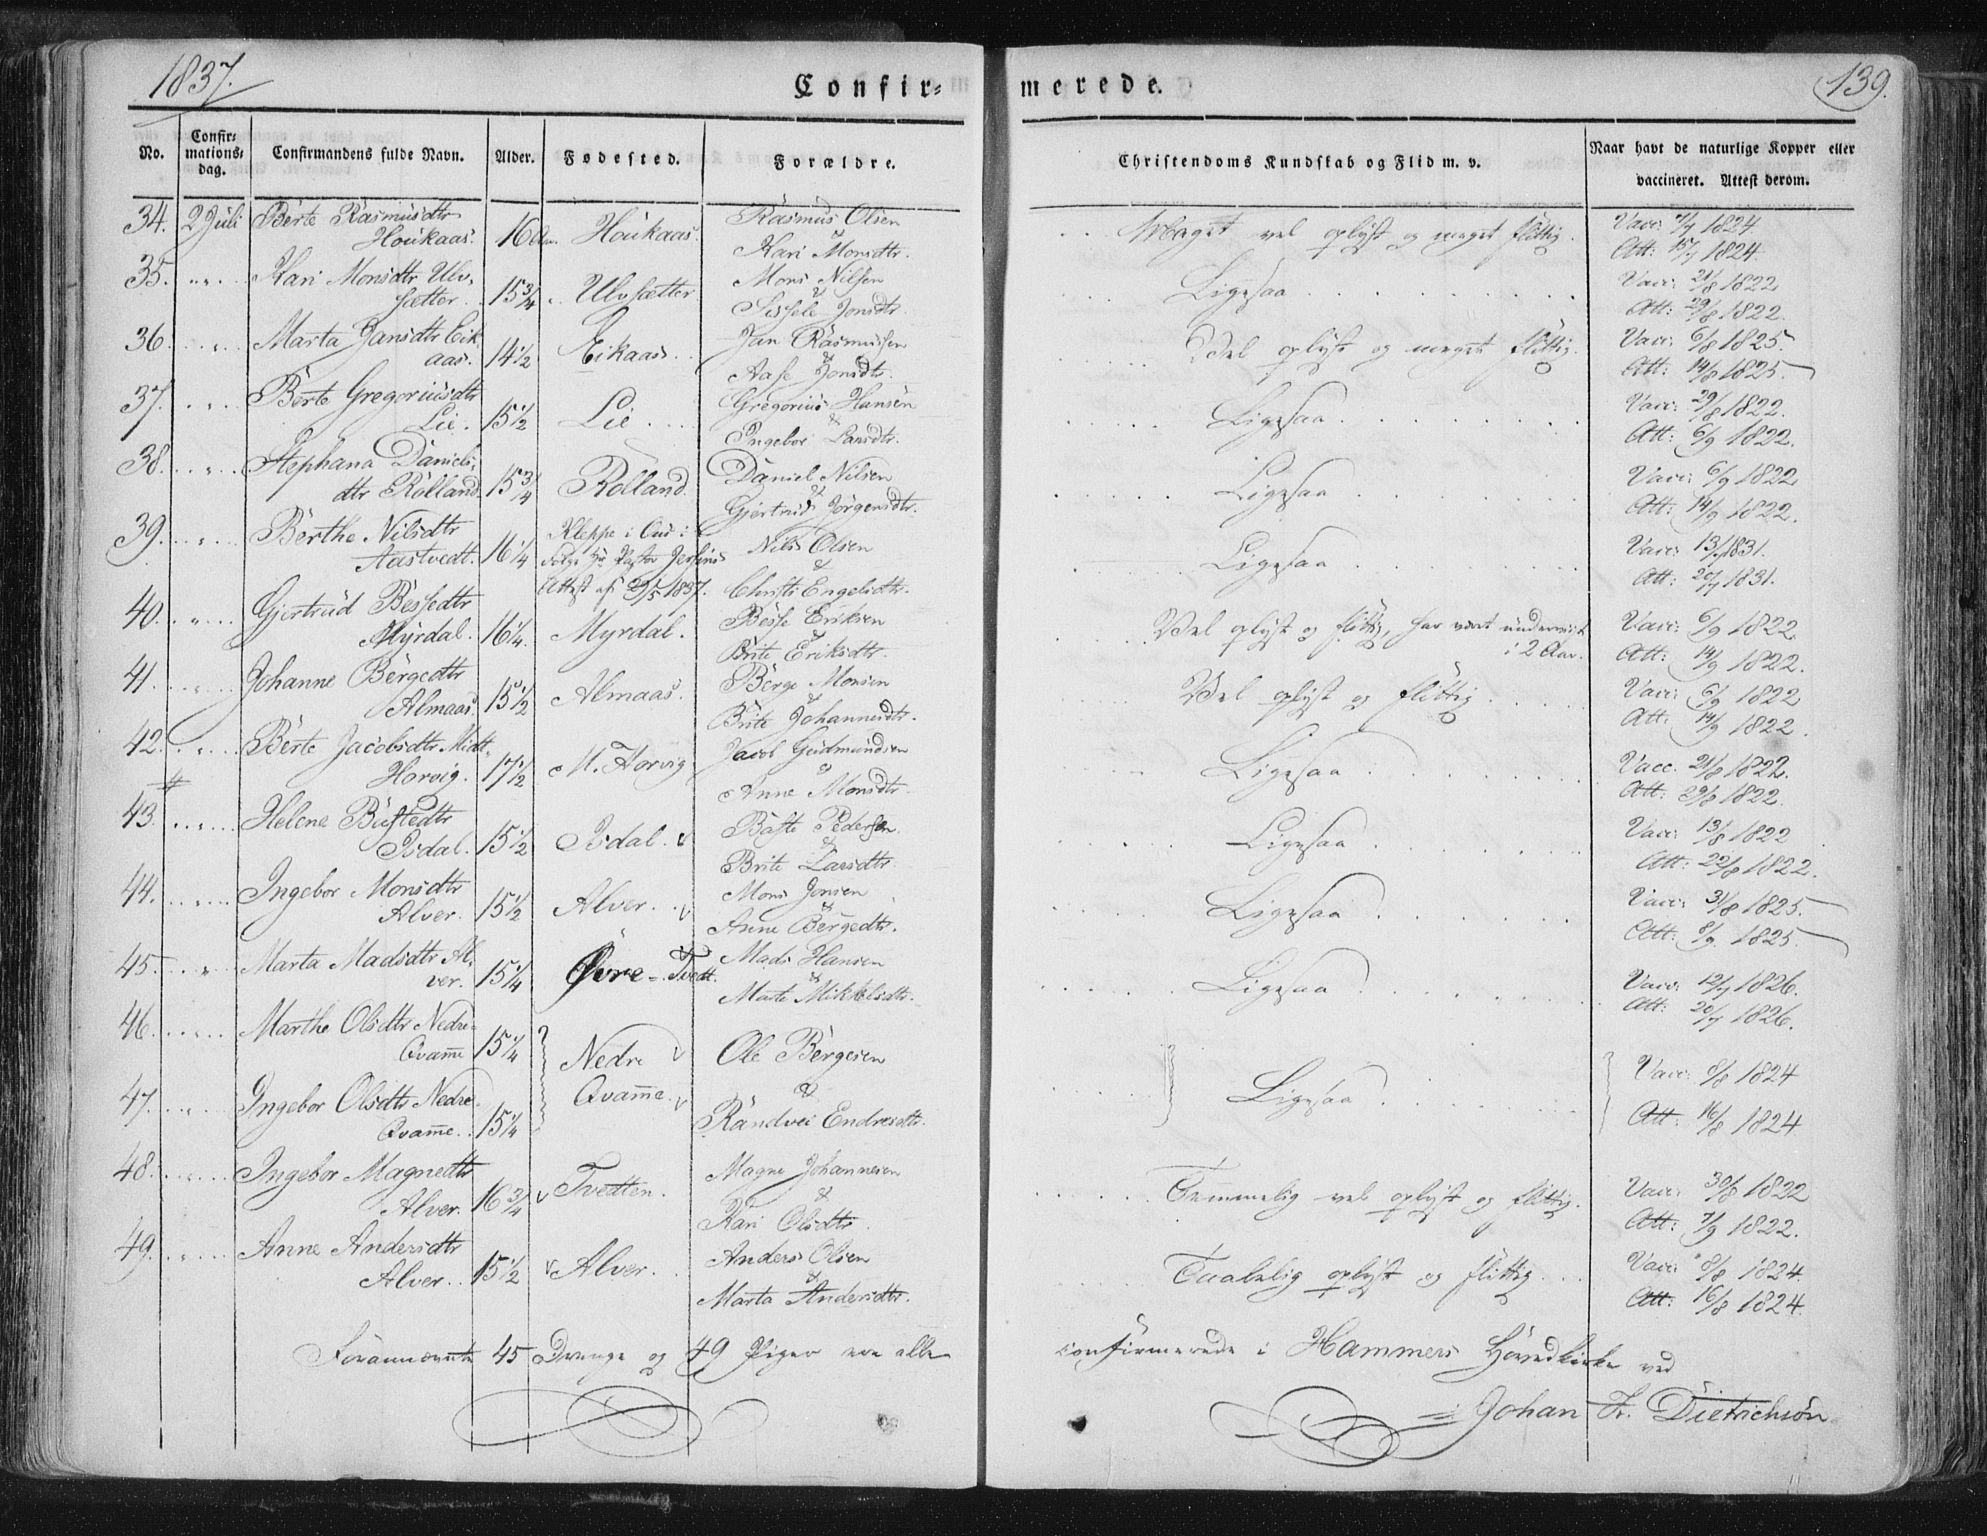 1837.
Confir=
merede.
139.
No.
Confir=
mations=
dag.
Confirmandens fulde Navn.
Alder.
Fødested.
Forældre.
Christendoms Kundskab og Flid m. v.
Naar havt de naturlige Kopper eller
vaccineret. Attest derom.
34. 2 Juli Berte Rasmusdtr Rasmus Olsen Vacc: 7/7 1824
Houkaas. 16 Houkaas. Meget vel oplyst og meget flittig.
Kari Monsdtr. Att: 15/7 1824.
35. „ Kari Monsdtr Ulv- Mons Nilsen Vacc: 21/8 1822
sætter. 15 3/4 Ulvsætter & Ligesaa
Sissele Jonsdtr. Att: 29/8 1822.
36. „ Marta Jansdtr Eik- Jan Rasmussen Vacc: 6/8 1825.
aas. 14 1/2 Eikaas. & Vel oplyst og meget flittig.
Aase Jonsdtr. Att: 14/8 1825.
37. „ Berte Gregoriusdtr Gregorius Hansen Vacc: 29/8 1822.
Lie. 15 1/2 Lie. & Ligesaa
Ingebor Larsdtr. Att: 6/9 1822.
38. „ Stephana Daniels- Daniel Nilsen Vacc: 6/9 1822
dtr Rolland. 15 3/4 Rolland. & Ligesaa
Gjertrud Jørgensdtr. Att: 14/9 1822.
39. „ Berthe Nilsdtr Kleppe i Nils Olsen Vacc: 13/7 1831.
Aastvedt. 16 1/4 Følge Hr Pastor & Ligesaa
Attest af 29/5 1837. Christi Engelsdtr. Att: 20/7 1831.
40. „ Gjertrud Bessedtr Besse Eriksen Vacc: 6/9 1822
Myrdal. 16 1/4. Myrdal. & Vel oplyst og flittig, har været underviist
i 2 Aar.
Brite Eriksdtr. Att: 14/9 1822.
41. „ Johanne Bergedtr Berge Monsen Vacc: 6/9 1822
Almaas. 15 1/2 Almaas. & Vel oplyst og flittig.
Brite Johannesdtr. Att: 14/9 1822.
42. „ Berte Jacobsdtr Midt- Jacob Gudmundsen Vacc. 21/8 1822.
Horvig. 17 1/2 M. Horvig & Ligesaa
Anne Monsdtr. Att: 29/8 1822.
43. „ Helene Bustedtr Baste Pedersen Vacc: 13/8 1822
Isdal. 15 1/2 Isdal. & Ligesaa
Brite Larsdtr. Att: 22/8 1822.
44. „ Ingebor Monsdtr Mons Jonsen Vacc: 31/8 1825.
Alver. 15 1/2 Alver. & Ligesaa
Anne Bergedtr. Att: 8/9 1825.
45. „ Marta Madsdtr Al- Mads Hansen
ver. 15 1/4 Øvre-Tvedt. & Ligesaa Vacc: 12/7 1826.
Marte Mikkelsdtr. Att: 20/7 1826.
46. „ Marthe Olsdtr Nedre-
Qvam̅e 15 1/4 Nedre Ole Bergesen Vacc: 8/8 1824
Qvam̅e. & Ligesaa
47. „ Ingebor Olsdtr Nedre-
Qvam̅e. 15 1/4 Randvei Endresdtr. Att: 16/8 1824
48. „ Ingebor Magnedtr Magne Johannesen Vacc: 30/8 1822
Alver. 16 3/4 Tvedten. & Temmelig vel oplyst og flittig.
Kari Olsdtr. Att: 7/9 1822.
49. „ Anne Andersdtr Anders Olsen Vacc: 8/8 1824.
Alver. 15 1/2 Alver. & Taalelig oplyst og flittig.
Marta Andersdtr. Att: 16/8 1824.
Forannævnte 45 Drenge og 49 Piger ere alle confirmerede i Hammers Hovedkirke ved
Johan Fr. Dietrichson